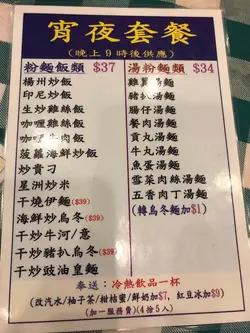 宵夜套餐
(晚上9時後供應)
粉麵飯類 $37
楊州炒飯
印尼炒飯
生炒雞絲飯
咖喱雞絲飯
咖喱牛肉飯
菠蘿海鮮炒飯
炒貴刁
星洲炒米
干燒伊麵($39)
海鮮炒烏冬($39)
干炒牛河/意
干炒豬扒烏冬($39)
干炒豉油皇麵
湯粉麵類 $34
雞翼湯麵
豬扒湯麵
腸仔湯麵
餐肉湯麵
貢丸湯麵
牛丸湯麵
魚蛋湯麵
雪菜肉絲湯麵
五香肉丁湯麵
(轉烏冬麵加$1)
奉送：冷熱飲品一杯
(改汽水/柚子茶/柑桔蜜/鮮奶加$7, 紅豆冰加$9)
(加一服務費)(4捨5入)